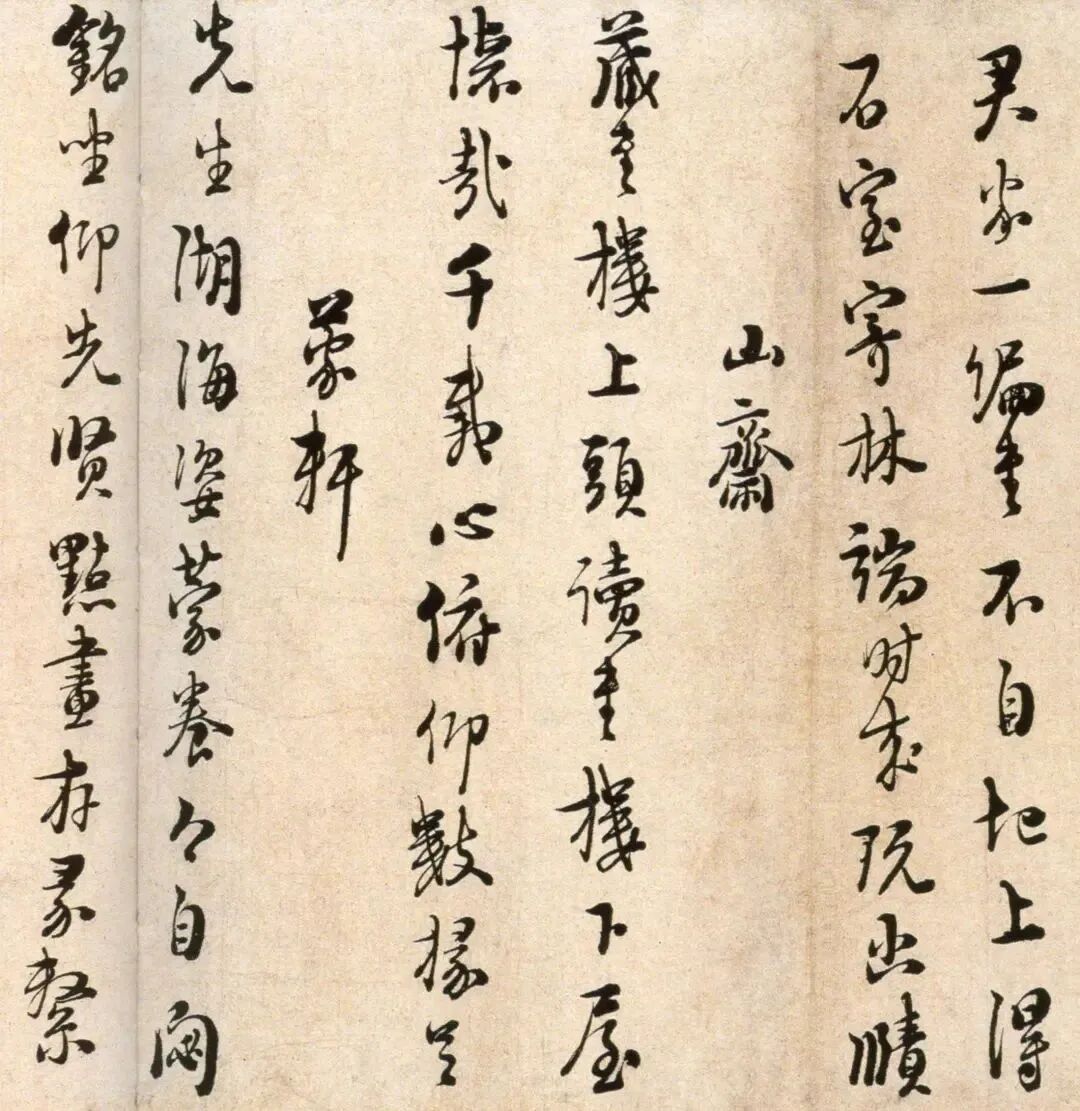 君家一編書不自圯上得
石室寄林端時來玩幽賾
山齋
藏書樓上頭讀書樓下屋
懷哉千載心俯仰數椽足
蒙軒
先生湖海姿蒙養今自閟
銘坐仰先賢點畫存彖繫